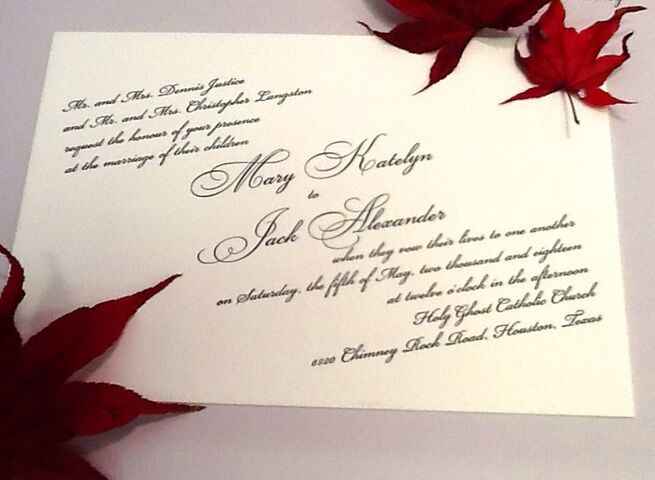 Mr. and Mrs. Dennis Justice
and Mr. and Mrs. Christopher Langston
request the honour of your presence
at the marriage of their children
Mary Katelyn
to
Jack Alexander
when they vow their lives to one another
on Saturday, the fifth of May, two thousand and eighteen
at twelve o'clock in the afternoon
Holy Ghost Catholic Church
6920 Chimney Rock Road, Houston, Texas